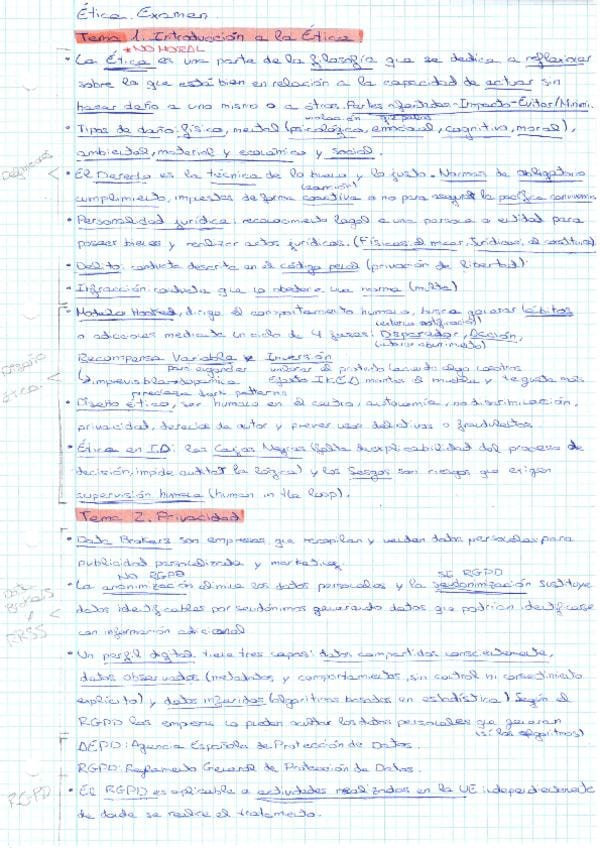 Ética. Examen.
Tema 1. Introducción a la Ética
* NO MORAL
• La Ética es una parte de la filosofía que se dedica a reflexionar
sobre lo que está bien en relación a la capacidad de actuar sin
hacer daño a uno mismo o a otros. Partes afectadas - Impacto - Evitar/Minimi.
• Tipos de daño: físico, mental (psicológico, emocional, cognitivo, moral),
ambiental, material y económico y social.
Definiciones
• El Derecho es la técnica de lo bueno y lo justo. Normas de obligatorio
cumplimiento, impuestas de forma coactiva o no para asegurar la pacífica convivencia
• Personalidad jurídica: reconocimiento legal a una persona o entidad para
poseer bienes y realizar actos jurídicos. (Físicas: al nacer, Jurídicas: al constituirse)
• Delito: conducta descrita en el código penal (privación de libertad)
• Infracción: conducta que no obedece una norma (multa)
• Modelo Hooked, dirige el comportamiento humano, busca generar hábitos
o adicciones mediante un ciclo de 4 fases: Disparador, Acción,
Recompensa Variable e Inversión
Diseño
Ética
• Diseño ético, ser humano en el centro, autonomía, no discriminación,
privacidad, derechos de autor y prever usos delictivos o fraudulentos
• Ética en IA: las Cajas Negras (falta de explicabilidad del proceso de
decisión, impide auditar la lógica) y los Sesgos son riesgos que exigen
supervisión humana (human in the loop).
Tema 2. Privacidad
• Data Brokers son empresas que recopilan y venden datos personales para
publicidad personalizada y marketing
NO RGPD SI RGPD
• La anonimización elimina los datos personales y la seudonimización sustituye
datos identificables por seudónimos generando datos que podrían identificarse
con información adicional
Data
Brokers
y
RRSS
• Un perfil digital tiene tres capas: datos compartidos conscientemente,
datos observados (metadatos y comportamientos, sin control ni consentimiento
explícito) y datos inferidos (algoritmos basados en estadística) Según el
RGPD las empresas no pueden ocultar los datos personales que generan
(sí los algoritmos)
AEPD: Agencia Española de Protección de Datos.
RGPD: Reglamento General de Protección de Datos.
RGPD
• El RGPD es aplicable a actividades realizadas en la UE independientemente
de donde se realice el tratamiento.